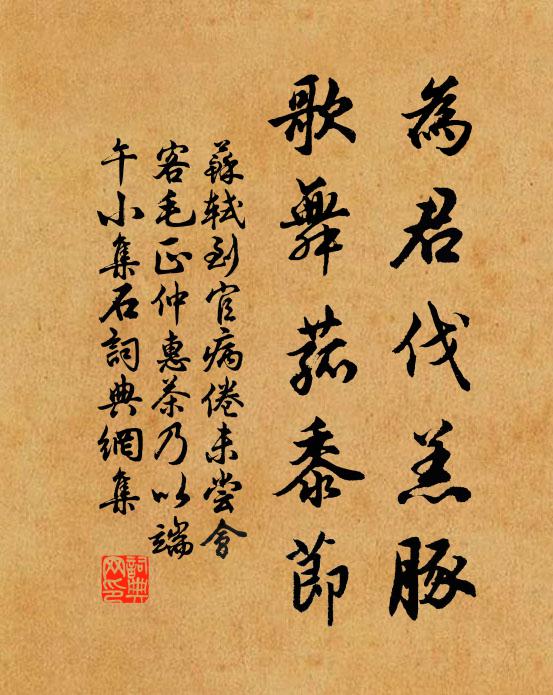 為君伐羔豚
歌舞菰黍節
蘇軾到官病倦未嘗會
客毛正仲惠茶乃以端
午小集石詞典網集
詞典
网印